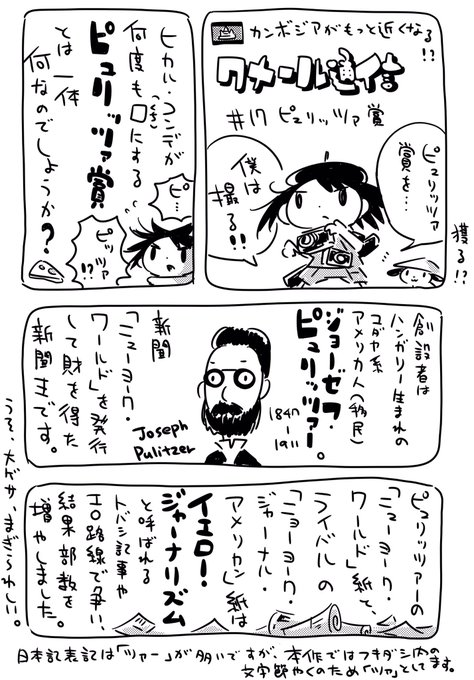 カンボジアがもっと近くなる!?
クメール通信
#17 ピュリッツァ賞
ピュリッツァ
賞を…
僕は
撮る!!
獲る!!
ヒカル・コンデが
何度も口にする
(くち)
ピュリッツァ賞
とは一体
何なのでしょうか?
ピ…
ピッツァ
!?
創設者は
ハンガリー生まれの
ユダヤ系
アメリカ人(移民)
ジョーゼフ・
ピュリッツァー。
1847-
1911
Joseph
Pulitzer
新聞
「ニューヨーク・
ワールド」を発行
して財を得た
新聞王です。
ピュリッツァーの
「ニューヨーク・
ワールド」紙と、
ライバルの
「ニューヨーク・
ジャーナル・
アメリカン」紙は
イエロー・
ジャーナリズム
と呼ばれる
トバシ記事や
エロ路線で争い、
結果部数を
増やしました。
うそ、大ゲサ、まぎらわしい。
日本記表記は「ツァー」が多いですが、本作ではフキダシ内の
文字節やくのため「ツァ」としてます。